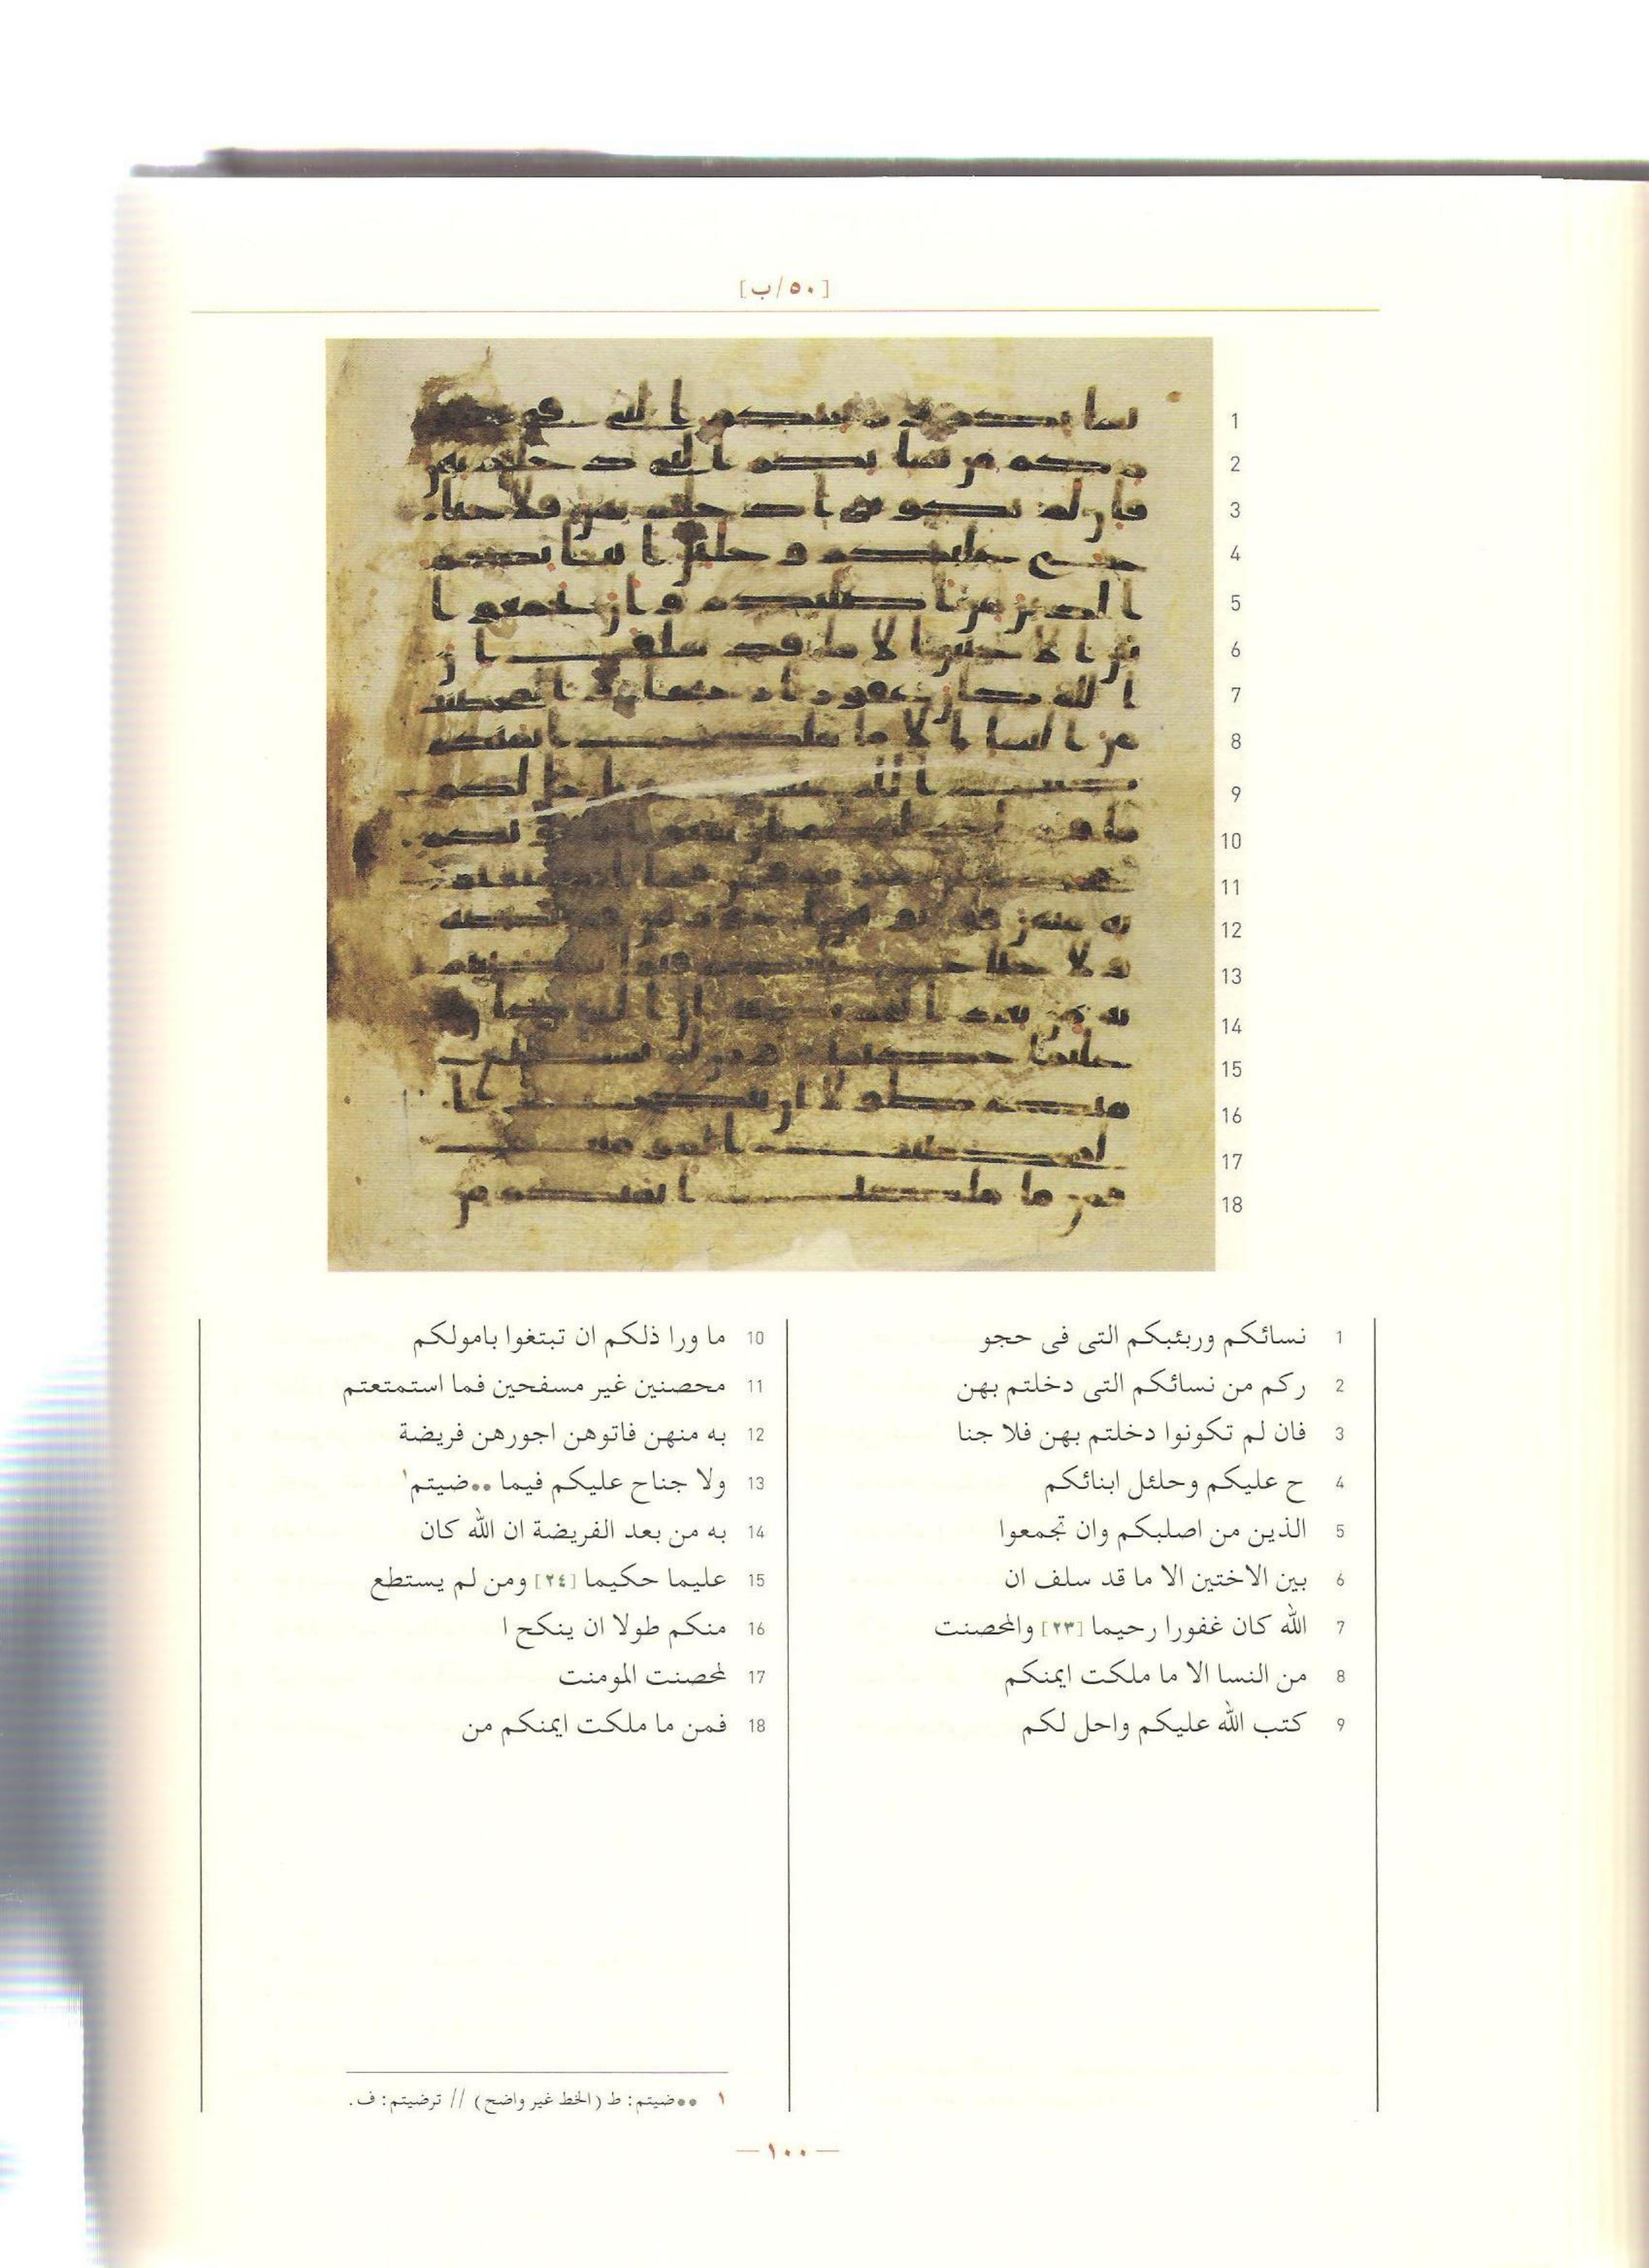 [٥٠/ب]
1
2
3
4
5
6
7
8
9
10
11
12
13
14
15
16
17
18
1 نسائكم وربئبكم التى فى حجو
2 ركم من نسائكم التى دخلتم بهن
3 فان لم تكونوا دخلتم بهن فلا جنا
4 ح عليكم وحلئل ابنائكم
5 الذين من اصلبكم وان تجمعوا
6 بين الاختين الا ما قد سلف ان
7 الله كان غفورا رحيما [٢٣] والمحصنت
8 من النسا الا ما ملكت ايمنكم
9 كتب الله عليكم واحل لكم
10 ما ورا ذلكم ان تبتغوا بامولكم
11 محصنين غير مسفحين فما استمتعتم
12 به منهن فاتوهن اجورهن فريضة
13 ولا جناح عليكم فيما ••ضيتم١
14 به من بعد الفريضة ان الله كان
15 عليما حكيما [٢٤] ومن لم يستطع
16 منكم طولا ان ينكح ا
17 لمحصنت المومنت
18 فمن ما ملكت ايمنكم من
١ ••ضيتم: ط (الخط غير واضح) // ترضيتم: ف.
— ١٠٠ —